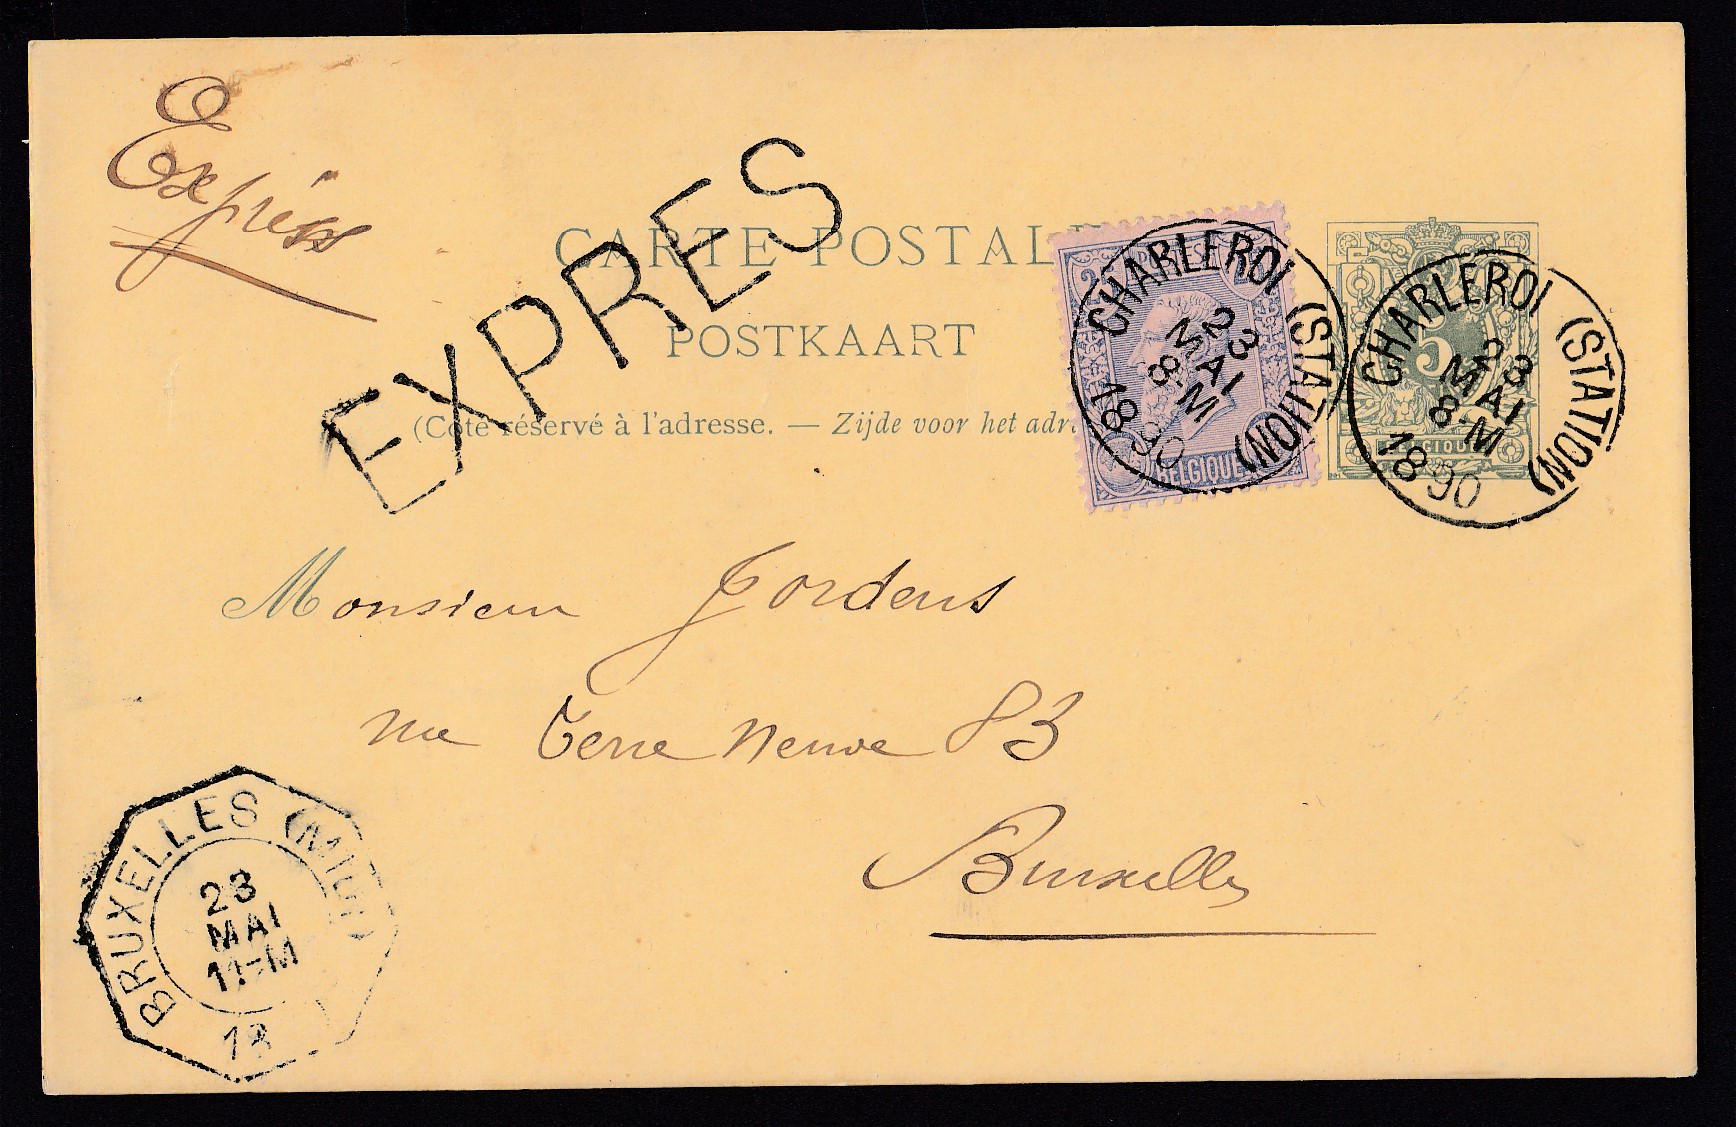 Exprès
EXPRES
CARTE POSTAL
POSTKAART
(Côté réservé à l'adresse. — Zijde voor het adr
BELGIQUE
CHARLEROI (STATION)
23
MAI
8-M
1890
5
BELGIQUE
CHARLEROI (STATION)
23
MAI
8-M
1890
Monsieur Jordens
rue Terre Neuve 83
Bruxelles
BRUXELLES (MIDI)
23
MAI
11-M
18